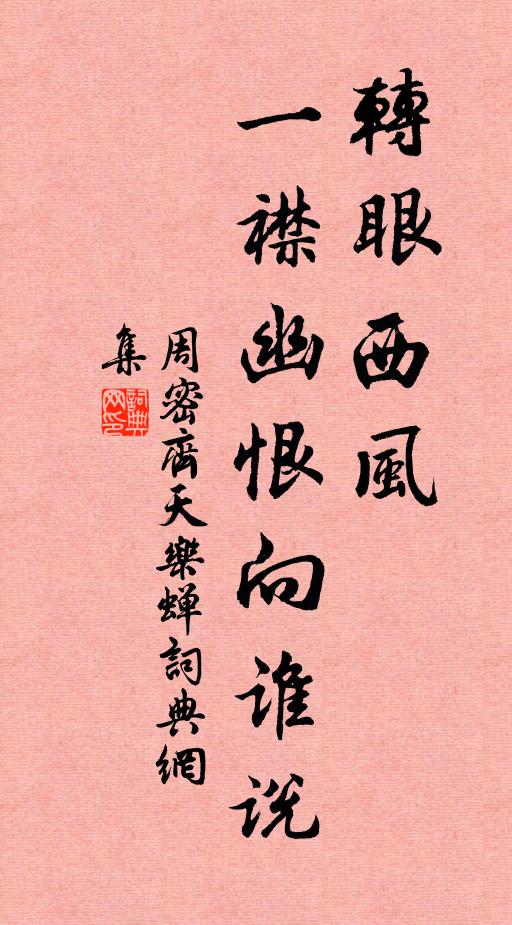 轉眼西風
一襟幽恨向谁说
周密齊天樂蝉詞典網
集
詞典
网印